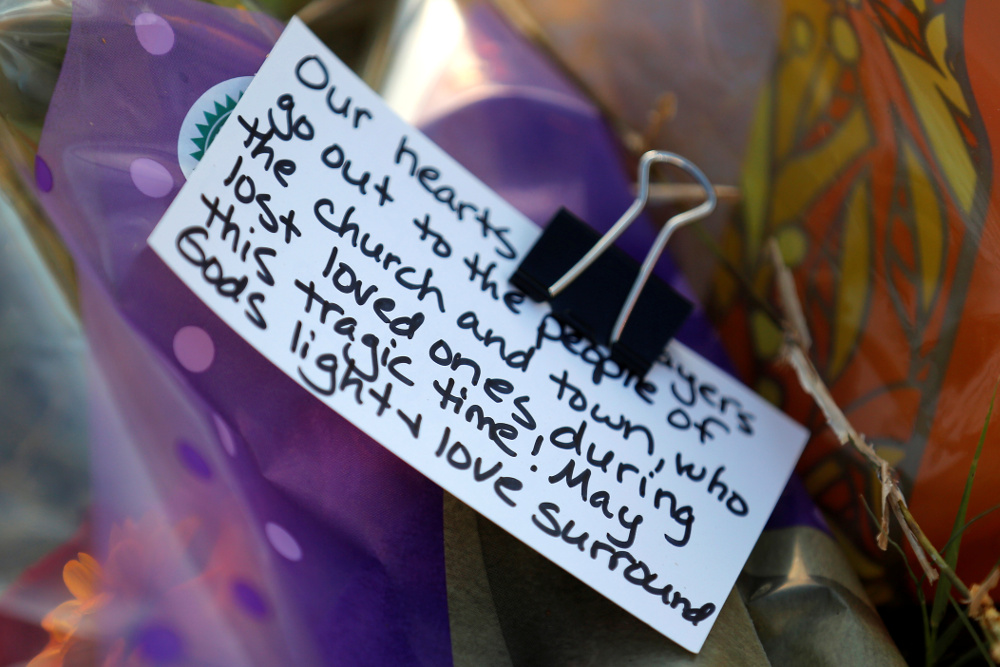 Our hearts
go out to the people of
the church and town, who
lost loved ones during
this tragic time! May
Gods light + love surround